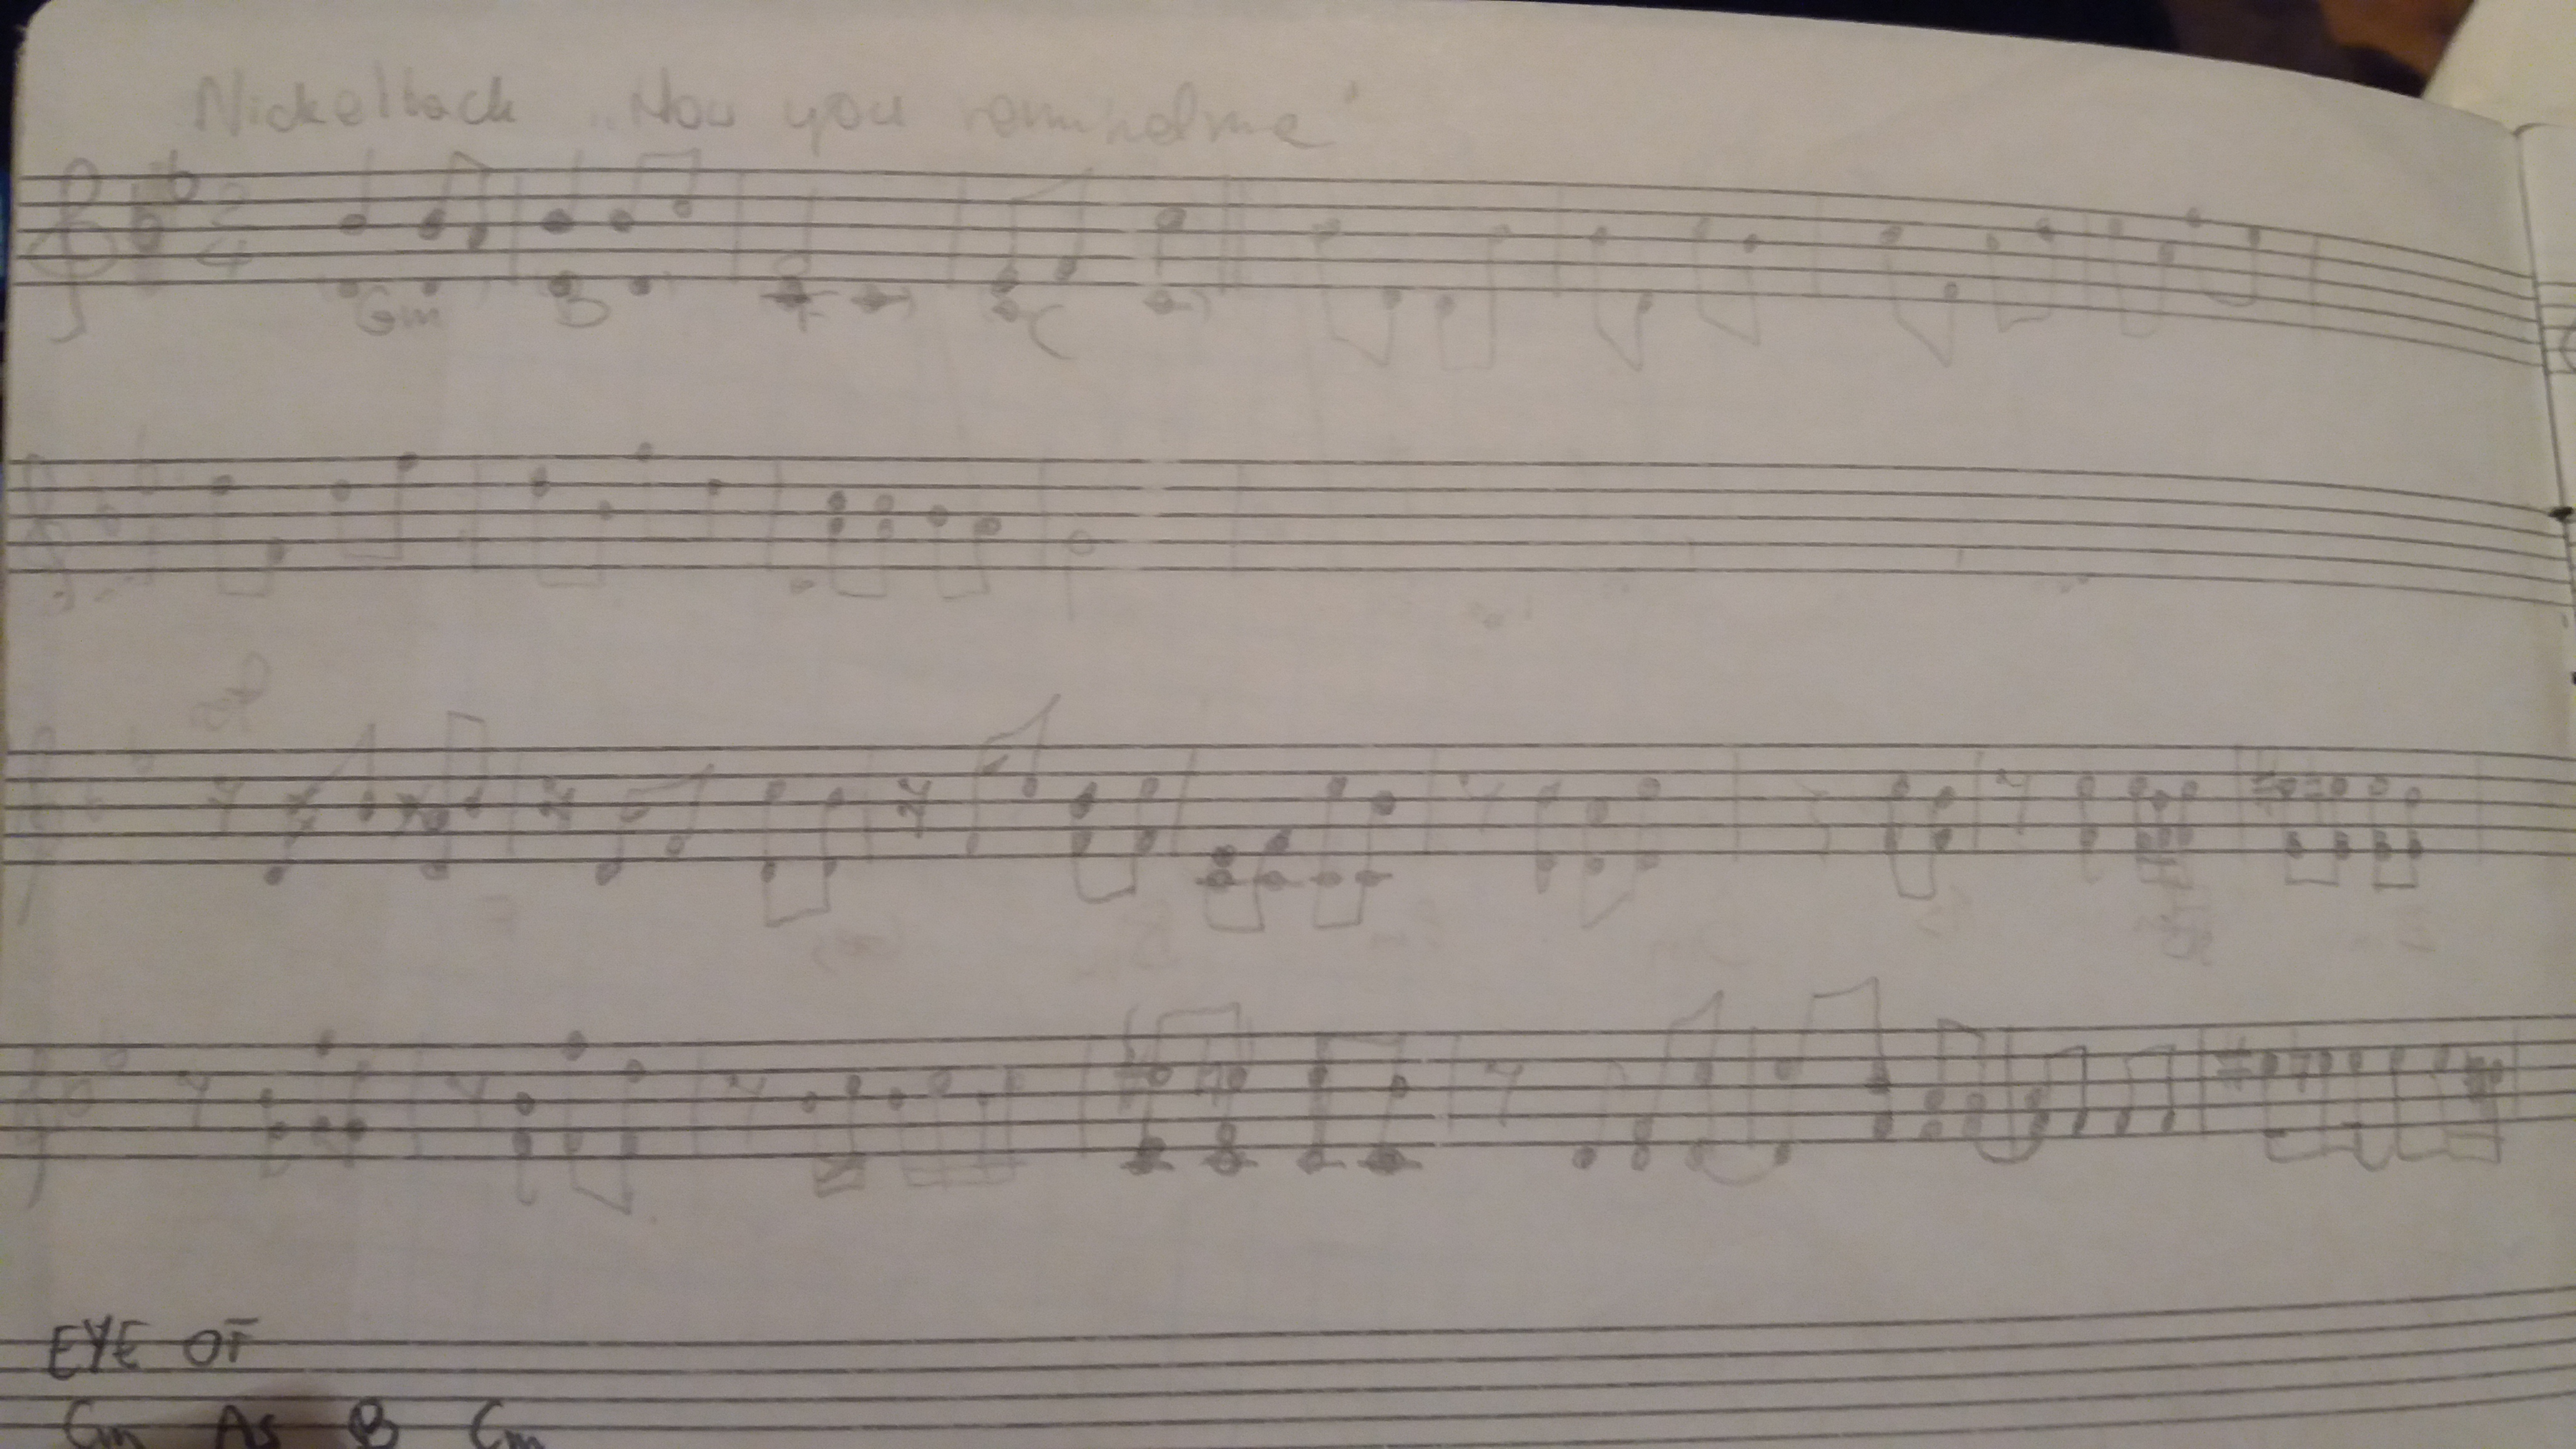 Nickelback „How you remindme"
2
4
Gm B F C
EYE OF
Cm As B Cm